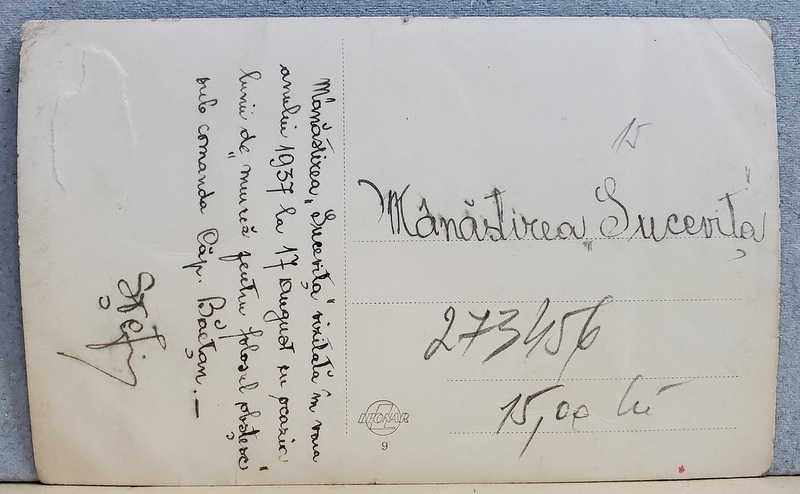 Mânăstirea „Sucevița" vizitată în vara
anului 1937 la 17 august cu ocazia
lunii de "muncă pentru folosul obștesc"
sub comanda Căp. Băețan. —
15
Mânăstirea „Sucevița"
273456
15,00 lei
LEONAR
9